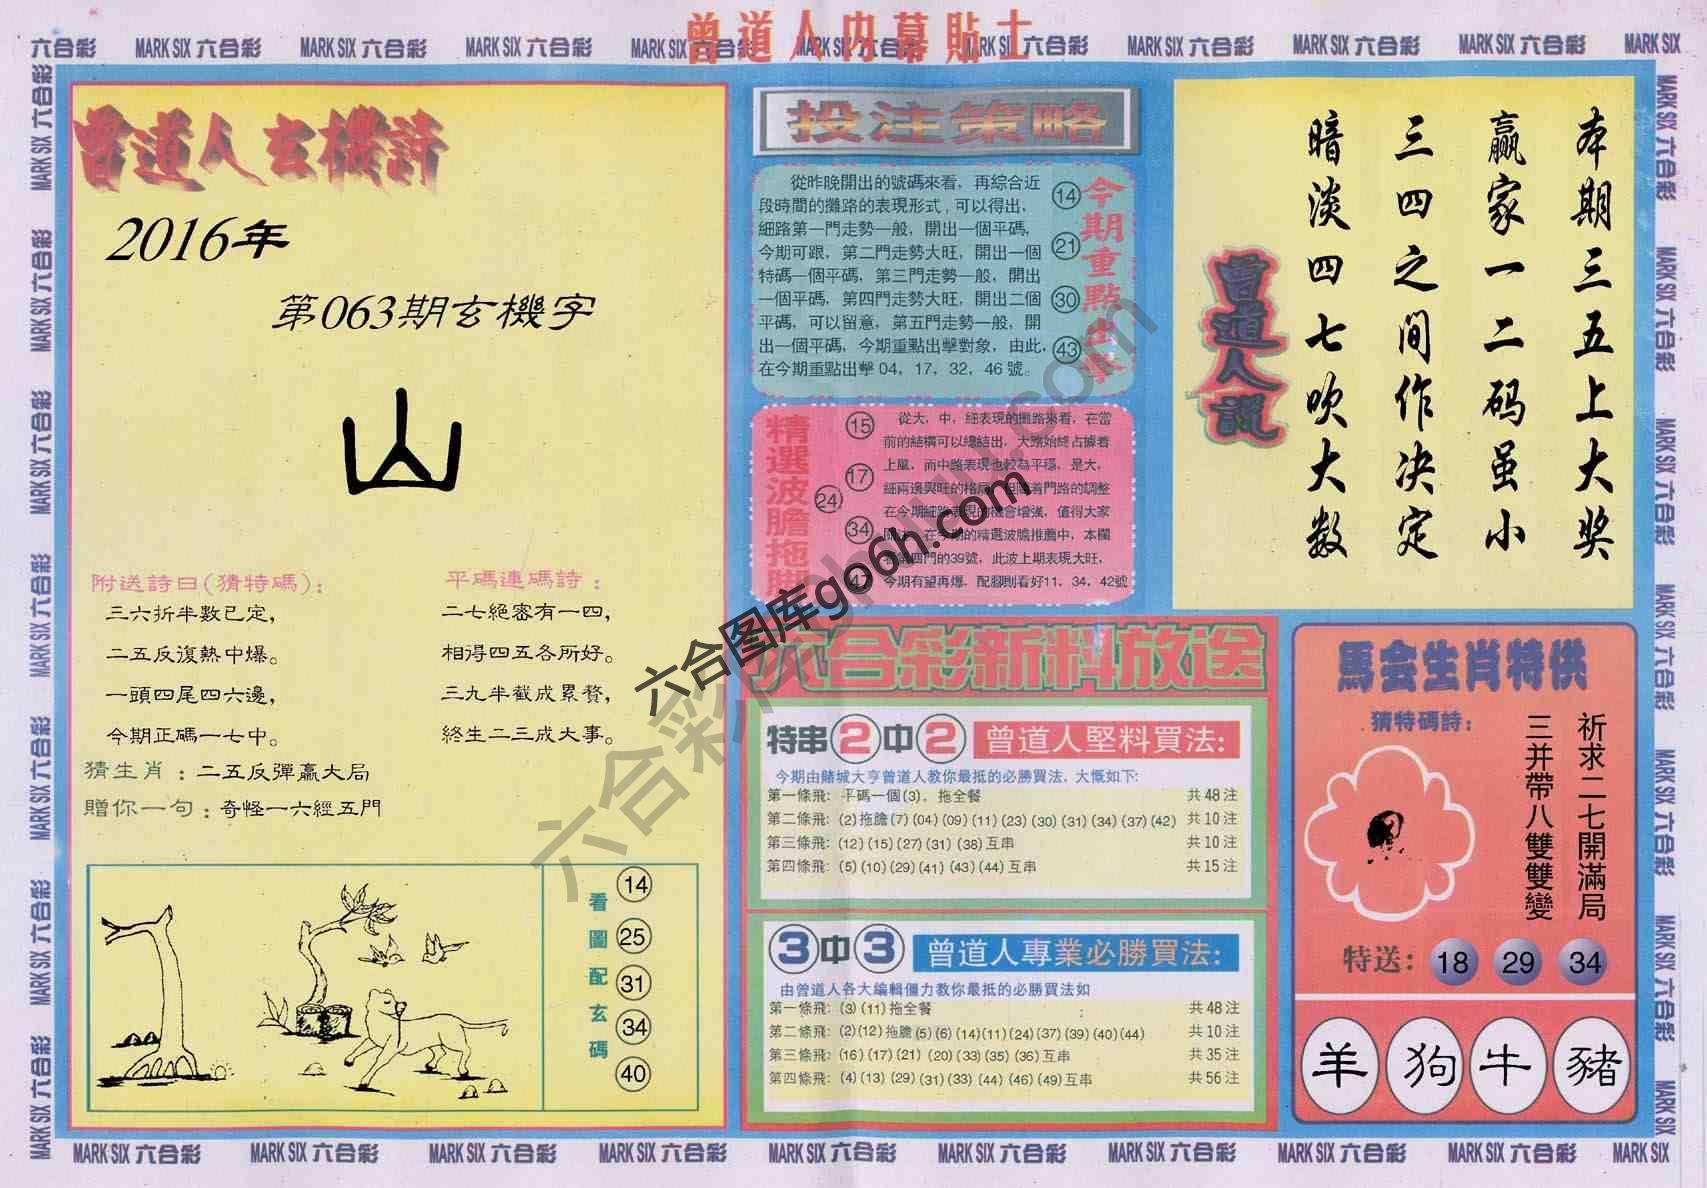 曾道人内幕貼士
六合彩 MARK SIX 六合彩 MARK SIX 六合彩 MARK SIX 六合彩 MARK SIX 六合彩 MARK SIX 六合彩 MARK SIX 六合彩 MARK SIX 六合彩 MARK SIX 六合彩 MARK SIX 六合彩 MARK SIX
曾道人玄機詩
2016年
第063期玄機字
山
附送詩曰(猜特碼):
三六折半數已定,
二五反復熱中爆。
一頭四尾四六邊,
今期正碼一七中。
平碼連碼詩:
二七絕密有一四,
相得四五各所好。
三九半截成累贅,
終生二三成大事。
猜生肖:二五反彈贏大局
贈你一句:奇怪一六經五門
看圖配玄碼
14
25
31
34
40
投注策略
從昨晚開出的號碼來看,再綜合近
段時間的攤路的表現形式,可以得出,
細路第一門走勢一般,開出一個平碼,
今期可跟,第二門走勢大旺,開出一個
特碼一個平碼,第三門走勢一般,開出
一個平碼,第四門走勢大旺,開出二個
平碼,可以留意,第五門走勢一般,開
出一個平碼,今期重點出擊對象,由此,
在今期重點出擊 04,17,32,46 號。
14
21
30
43
今期重點出擊
精選波膽拖腳
15
17
24
34
47
從大,中,細表現的攤路來看,在當
前的結構可以總結出,大路始終占據着
上風,而中路表現也較為平穩,是大,
細兩邊興旺的格局,但隨着門路的調整
在今期細路表現的機會增強,值得大家
在今期的精選波膽推薦中,本欄
第四門的39號,此波上期表現大旺,
今期有望再爆,配腳則看好11,34,42號
六合彩新料放送
特串2中2 曾道人堅料買法:
今期由賭城大亨曾道人教你最抵的必勝買法,大慨如下:
第一條飛: 平碼一個(3),拖全餐 共 48 注
第二條飛: (2)拖膽(7)(04)(09)(11)(23)(30)(31)(34)(37)(42) 共 10 注
第三條飛: (12)(15)(27)(31)(38)互串 共 10 注
第四條飛: (5)(10)(29)(41)(43)(44)互串 共 15 注
3中3 曾道人專業必勝買法:
由曾道人各大編輯僵力教你最抵的必勝買法如
第一條飛: (3)(11)拖全餐 共 48 注
第二條飛: (2)(12)拖膽(5)(6)(14)(11)(24)(37)(39)(40)(44) 共 10 注
第三條飛: (16)(17)(21)(20)(33)(35)(36)互串 共 35 注
第四條飛: (4)(13)(29)(31)(33)(44)(46)(49)互串 共 56 注
本期三五上大奖
赢家一二码虽小
三四之间作决定
暗淡四七吹大数
曾道人説
馬会生肖特供
猜特碼詩:
祈求二七開滿局
三并帶八雙雙變
特送: 18 29 34
羊 狗 牛 豬
六合图库go6h.com
MARK SIX 六合彩 MARK SIX 六合彩 MARK SIX 六合彩 MARK SIX 六合彩 MARK SIX 六合彩 MARK SIX 六合彩 MARK SIX 六合彩 MARK SIX 六合彩 MARK SIX 六合彩 MARK SIX